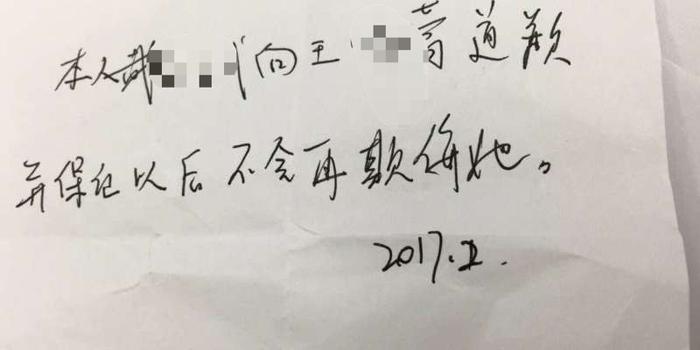 本人戴向王道歉
并保证以后不会再欺侮她。
2017.